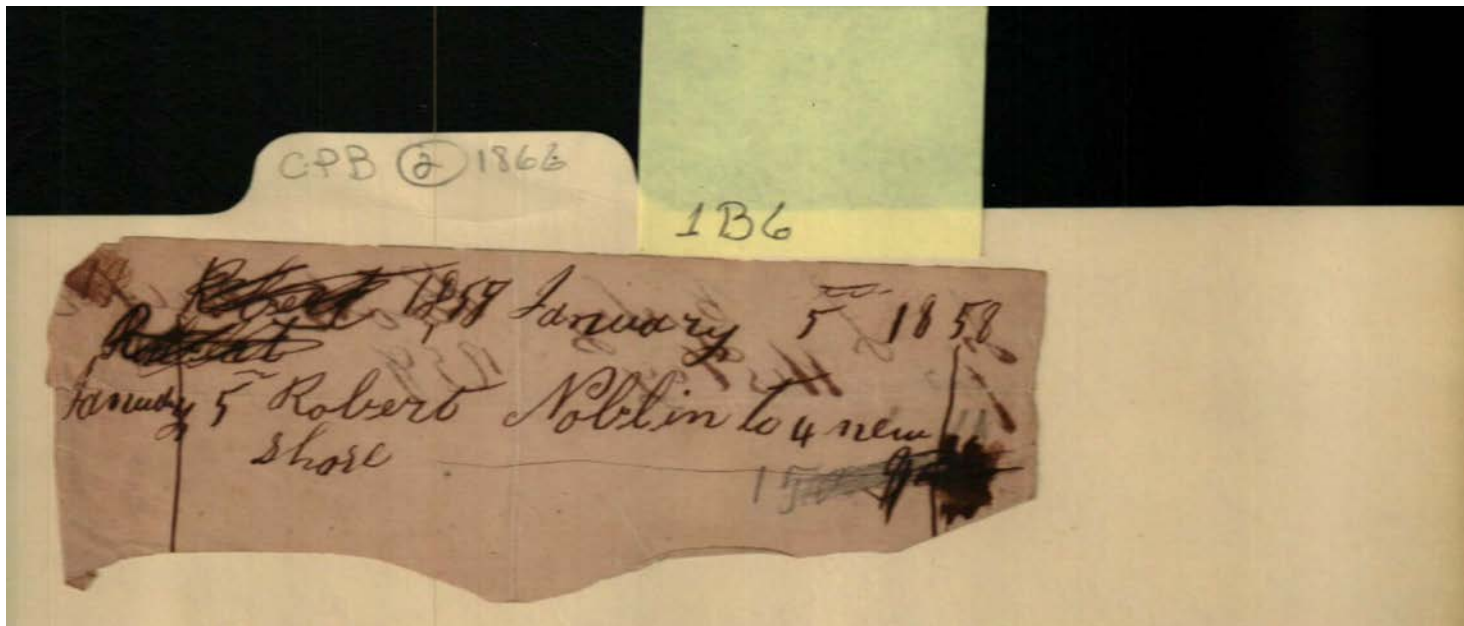 CPB 2 1866
1B6
Robert 1858 January 5 1858
January 5 Robert Noblin to 4 new
shose